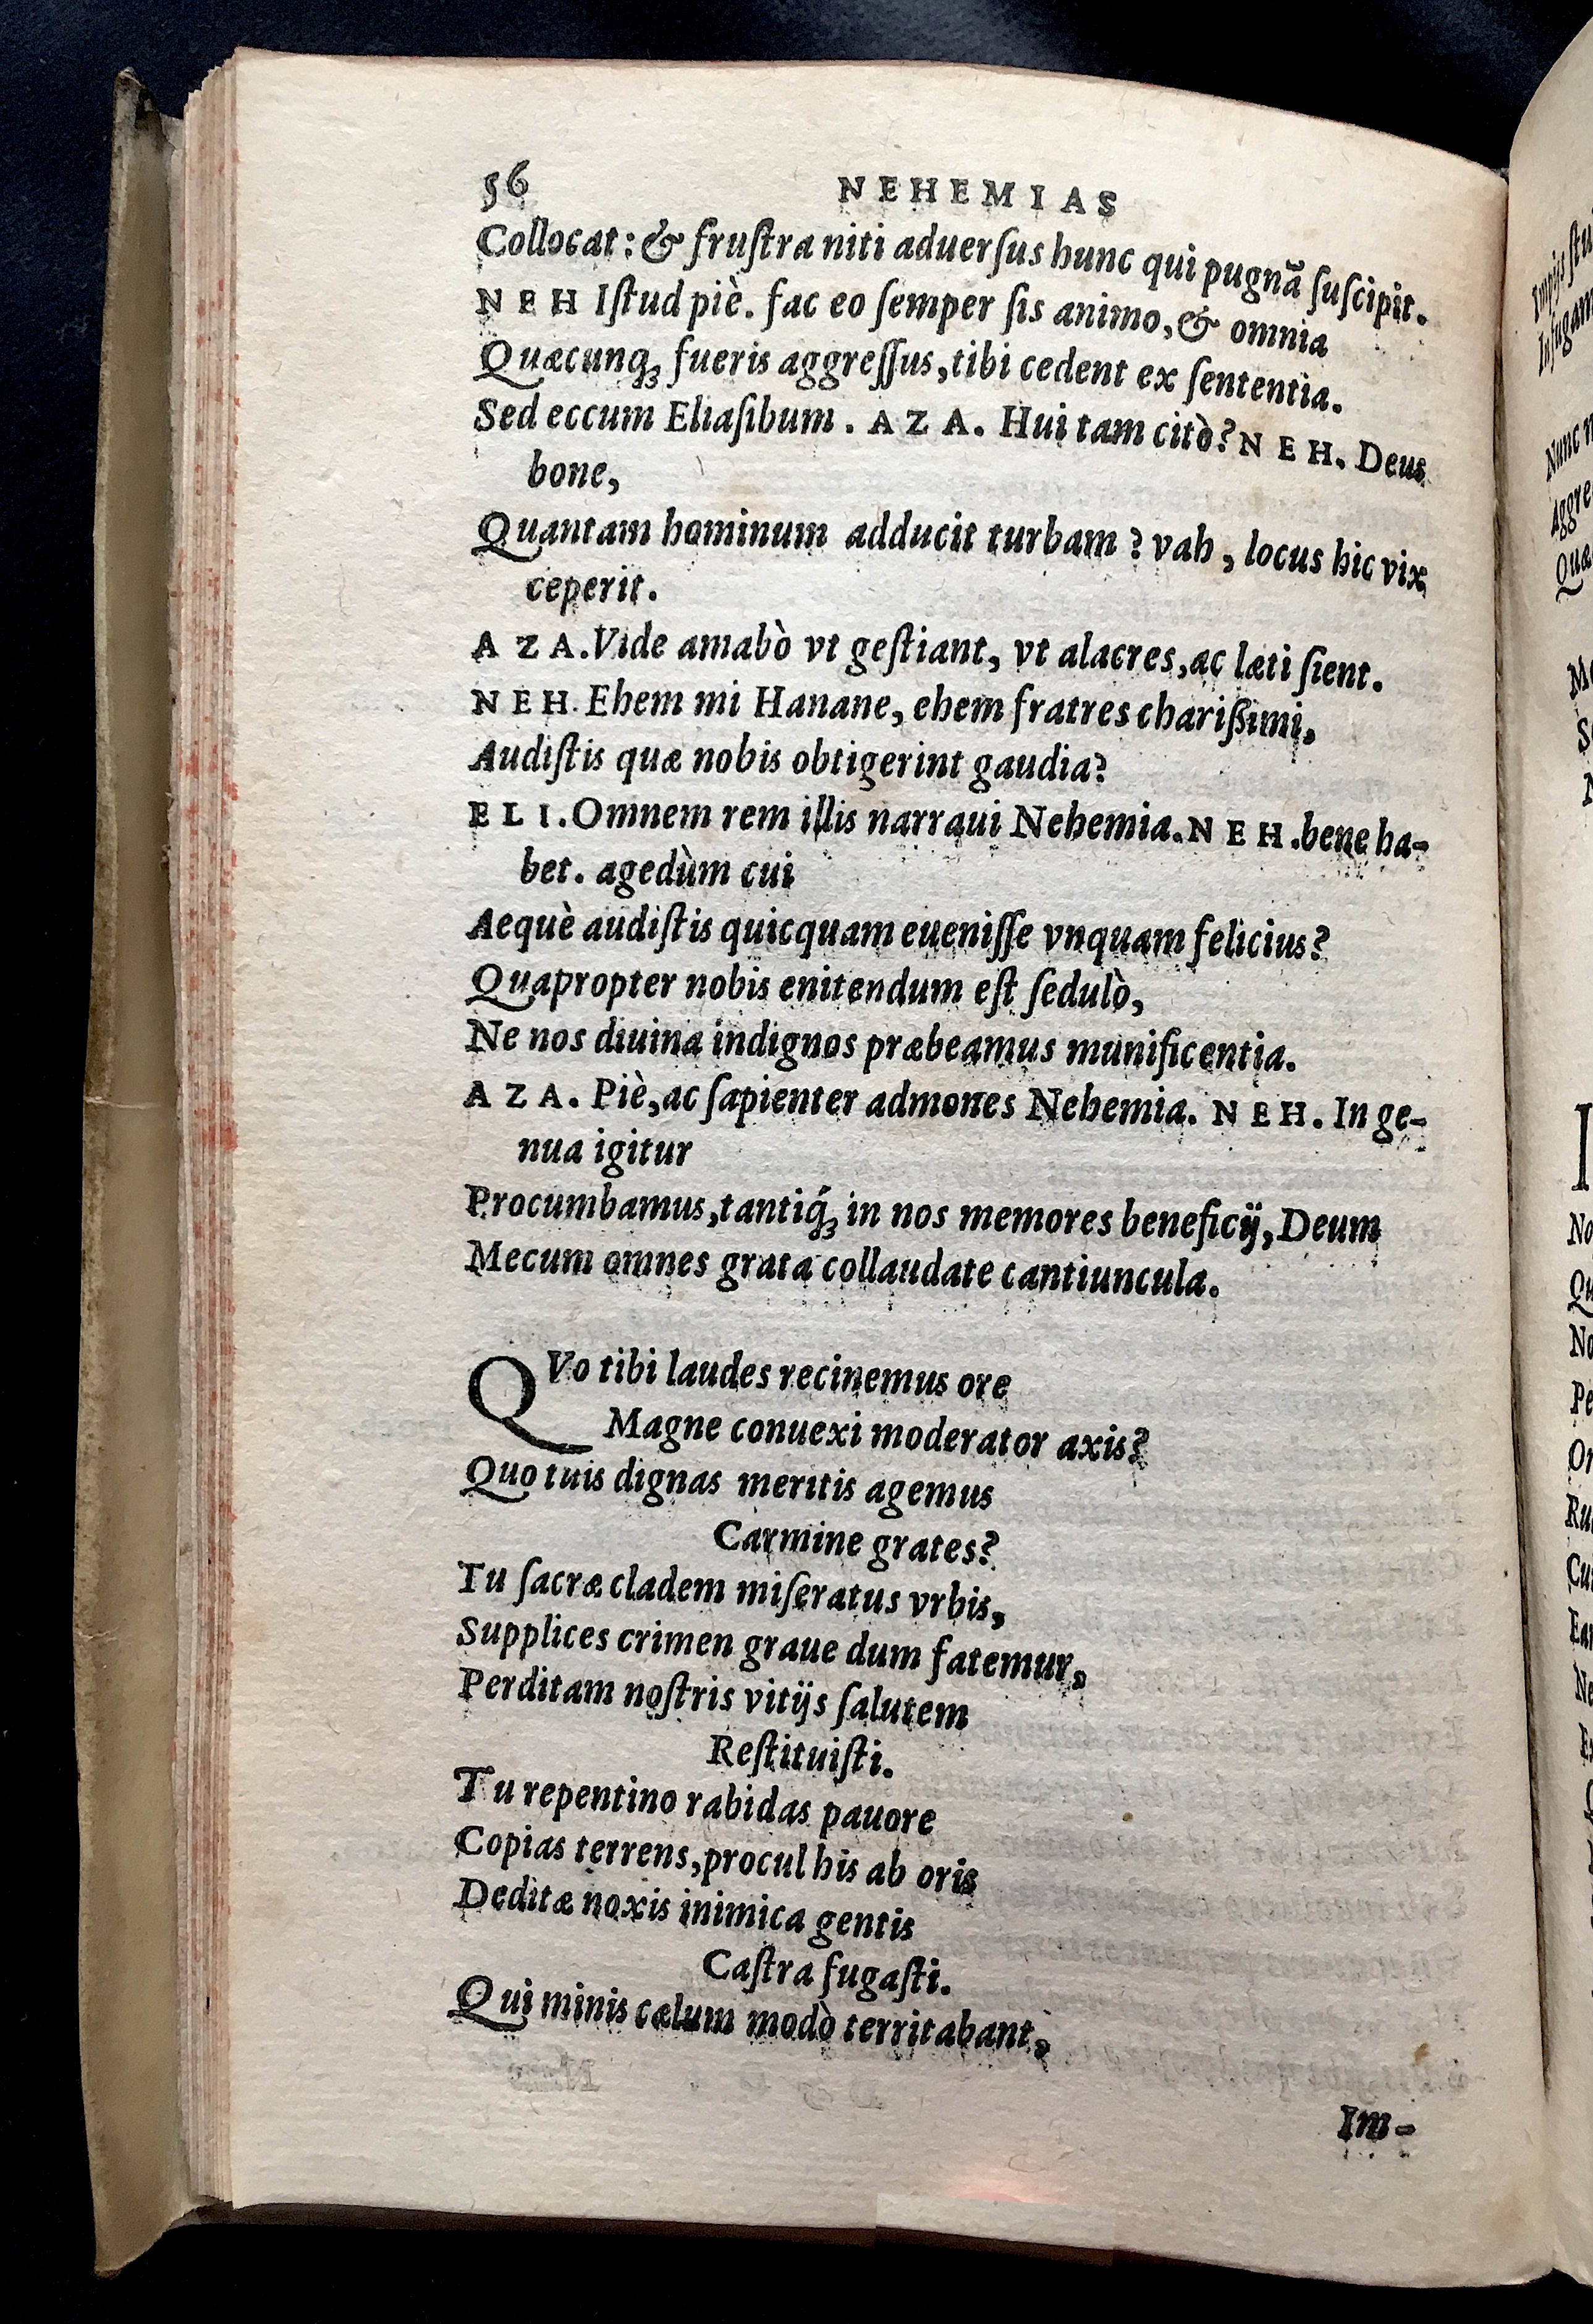 56 NEHEMIAS
Collocat: & fruſtra niti aduerſus hunc qui pugnā ſuſcipit.
NEH Iſtud piè. fac eo ſemper ſis animo, & omnia
Quæcunqꝫ fueris aggreſſus, tibi cedent ex ſententia.
Sed eccum Eliaſibum. AZA. Hui tam citò? NEH. Deus
bone,
Quantam hominum adducit turbam? vah, locus hic vix
ceperit.
AZA. Vide amabò vt geſtiant, vt alacres, ac læti ſient.
NEH. Ehem mi Hanane, ehem fratres chariſsimi,
Audiſtis quæ nobis obtigerint gaudia?
ELI. Omnem rem illis narraui Nehemia. NEH. bene ha-
bet. agedùm cui
Aequè audiſtis quicquam eueniſſe vnquam felicius?
Quapropter nobis enitendum eſt ſedulò,
Ne nos diuina indignos præbeamus munificentia.
AZA. Piè, ac ſapienter admones Nehemia. NEH. In ge-
nua igitur
Procumbamus, tantiq́ꝫ in nos memores beneficij, Deum
Mecum omnes grata collaudate cantiuncula.
QVo tibi laudes recinemus ore
Magne conuexi moderator axis?
Quo tuis dignas meritis agemus
Carmine grates?
Tu ſacræ cladem miſeratus vrbis,
Supplices crimen graue dum fatemur,
Perditam noſtris vitijs ſalutem
Reſtituiſti.
Tu repentino rabidas pauore
Copias terrens, procul his ab oris
Deditæ noxis inimica gentis
Caſtra fugaſti.
Qui minis cælum modò territabant,
Im-
Impijs
Nunc
Aggre
Quæ
No
Qu
No
Pe